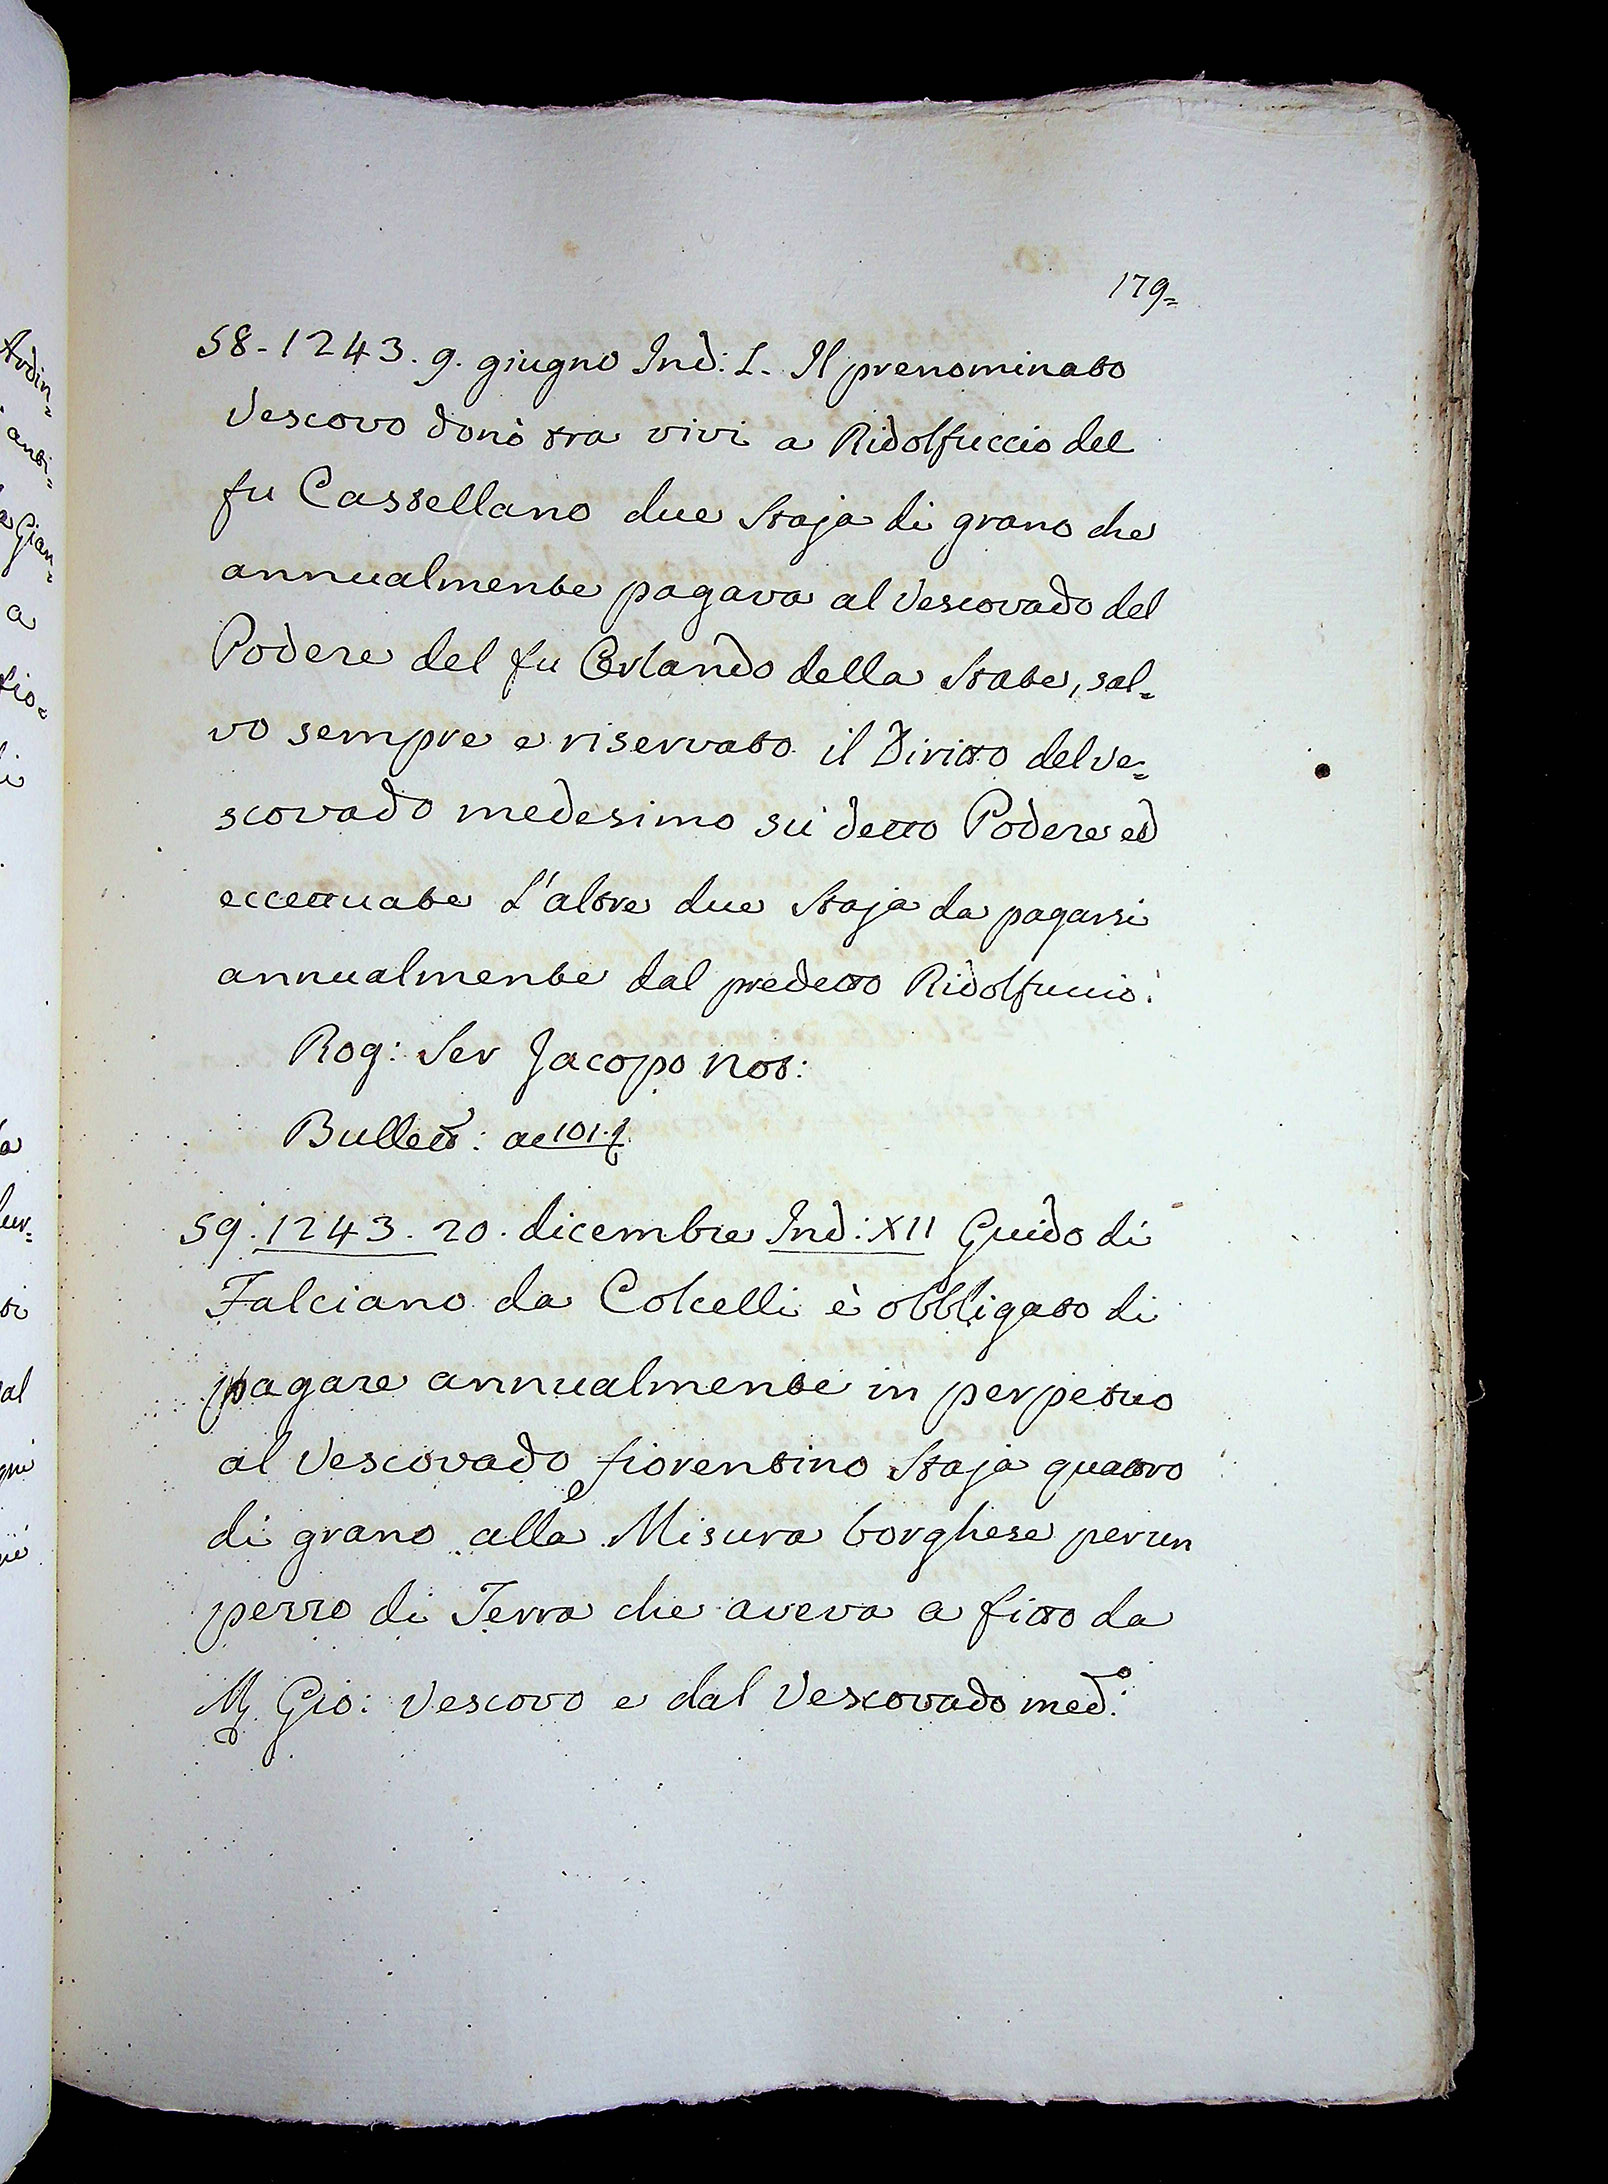 179=
58-1243. 9. giugno Ind: I. Il prenominato
Vescovo donò tra vivi a Ridolfuccio del
fu Castellano due Staja di grano che
annualmente pagava al Vescovado del
Podere del fu Orlando della State, sal=
vo sempre e riservato il Diritto del Ve=
scovado medesimo su detto Podere ed
eccettuate L'altre due Staja da pagarsi
annualmente dal predetto Ridolfuccio.
Rog: Ser Jacopo Not:
Bullett: a 101.
59. 1243. 20. dicembre Ind: XII Guido di
Falciano da Colcelli è obbligato di
pagare annualmente in perpetuo
al Vescovado fiorentino Staja quattro
di grano alla Misura borghese per un
pezzo di Terra che aveva a fitto da
M. Gio: Vescovo e dal Vescovado med:º
Ardin=
anti=
Gian=
a
al